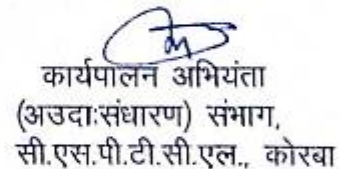 कार्यपालन अभियंता
(अउदाःसंधारण) संभाग,
सी.एस.पी.टी.सी.एल., कोरबा